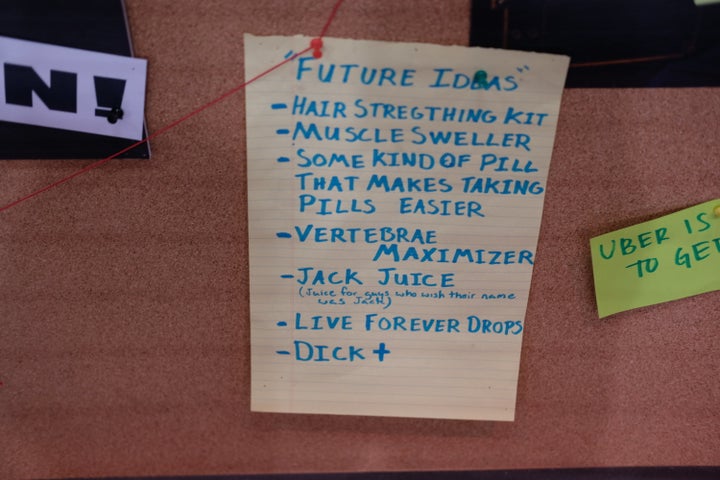 N!
"FUTURE IDEAS"
- HAIR STREGTHING KIT
- MUSCLE SWELLER
- SOME KIND OF PILL
THAT MAKES TAKING
PILLS EASIER
- VERTEBRAE
MAXIMIZER
- JACK JUICE
(Juice for guys who wish their name
was Jack)
- LIVE FOREVER DROPS
- DICK +
UBER IS
TO GET